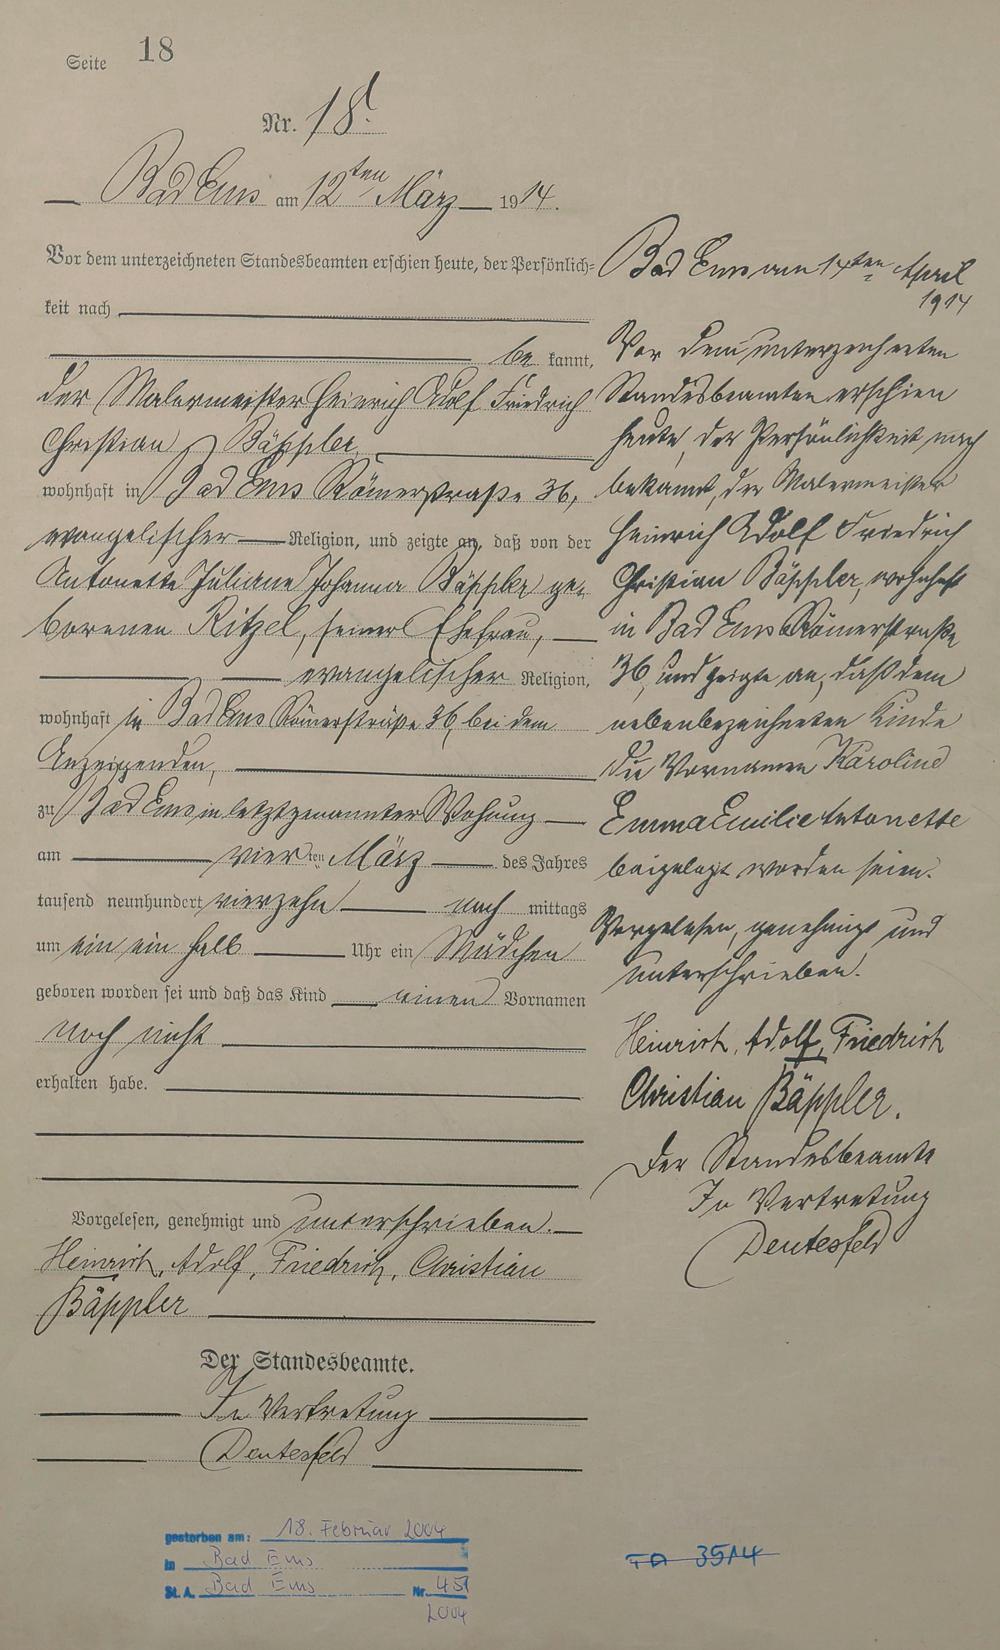 Seite 18
Nr. 18.
Bad Ems am 12ten März 1914.
Vor dem unterzeichneten Standesbeamten erschien heute, der Persönlich=
keit nach
be kannt,
der Malermeister Heinrich Adolf Friedrich
Christian Bäppler,
wohnhaft in Bad Ems Römerstraße 36,
evangelischer Religion, und zeigte an, daß von der
Antonette Juliane Johanna Bäppler ge-
borenen Ritzel, seiner Ehefrau,
evangelischer Religion,
wohnhaft in Bad Ems Römerstraße 36, bei dem
Anzeigenden,
zu Bad Ems in letztgenannter Wohnung
am vierten März des Jahres
tausend neunhundert vierzehn nach mittags
um ein ein halb Uhr ein Mädchen
geboren worden sei und daß das Kind einen Vornamen
noch nicht
erhalten habe.
Vorgelesen, genehmigt und unterschrieben.
Heinrich, Adolf, Friedrich, Christian
Bäppler
Der Standesbeamte.
In Vertretung
Deutesfeld
Bad Ems am 14ten April
1914
Vor dem unterzeichneten
Standesbeamten erschien
heute, der Persönlichkeit nach
bekannt, der Malermeister
Heinrich Adolf Friedrich
Christian Bäppler, wohnhaft
in Bad Ems Römerstraße
36, und zeigte an, daß dem
nebenbezeichneten Kinde
die Vornamen Karoline
Emma Emilie Antonette
beigelegt worden seien.
Vorgelesen, genehmigt und
unterschrieben.
Heinrich, Adolf, Friedrich
Christian Bäppler.
Der Standesbeamte
In Vertretung
Deutesfeld
gestorben am: 18. Februar 2004
in Bad Ems
St.A. Bad Ems Nr. 45
2004
3514